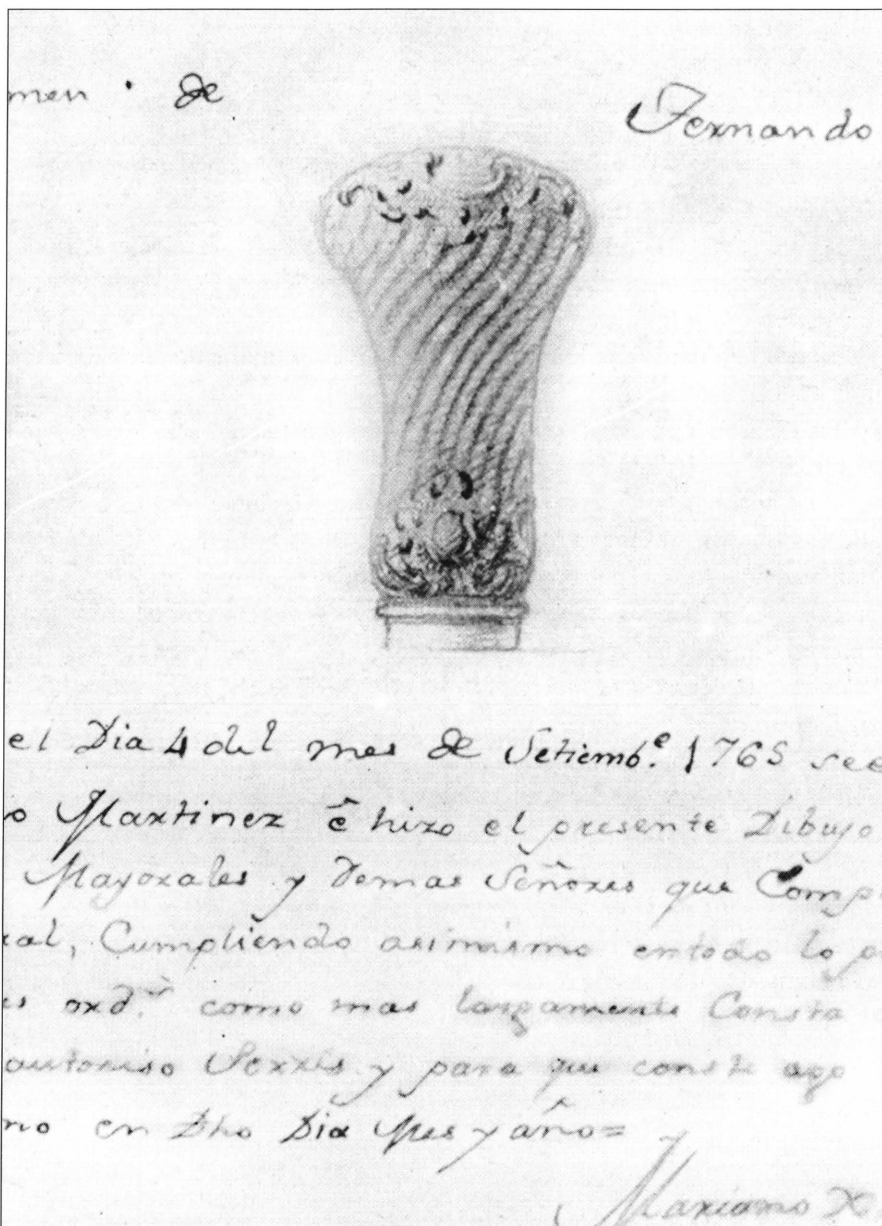 men de Fernando
el Dia 4 del mes de Setiemb.e 1765 see
o Martinez ê hizo el presente Dibujo
Mayorales y Demas Señores que Comp
ral, Cumpliendo asimismo entodo lo p
es ord.s como mas largamente Consta
autoriso y para que conste ago
no en Dho Dia Mes y año=
Mariano